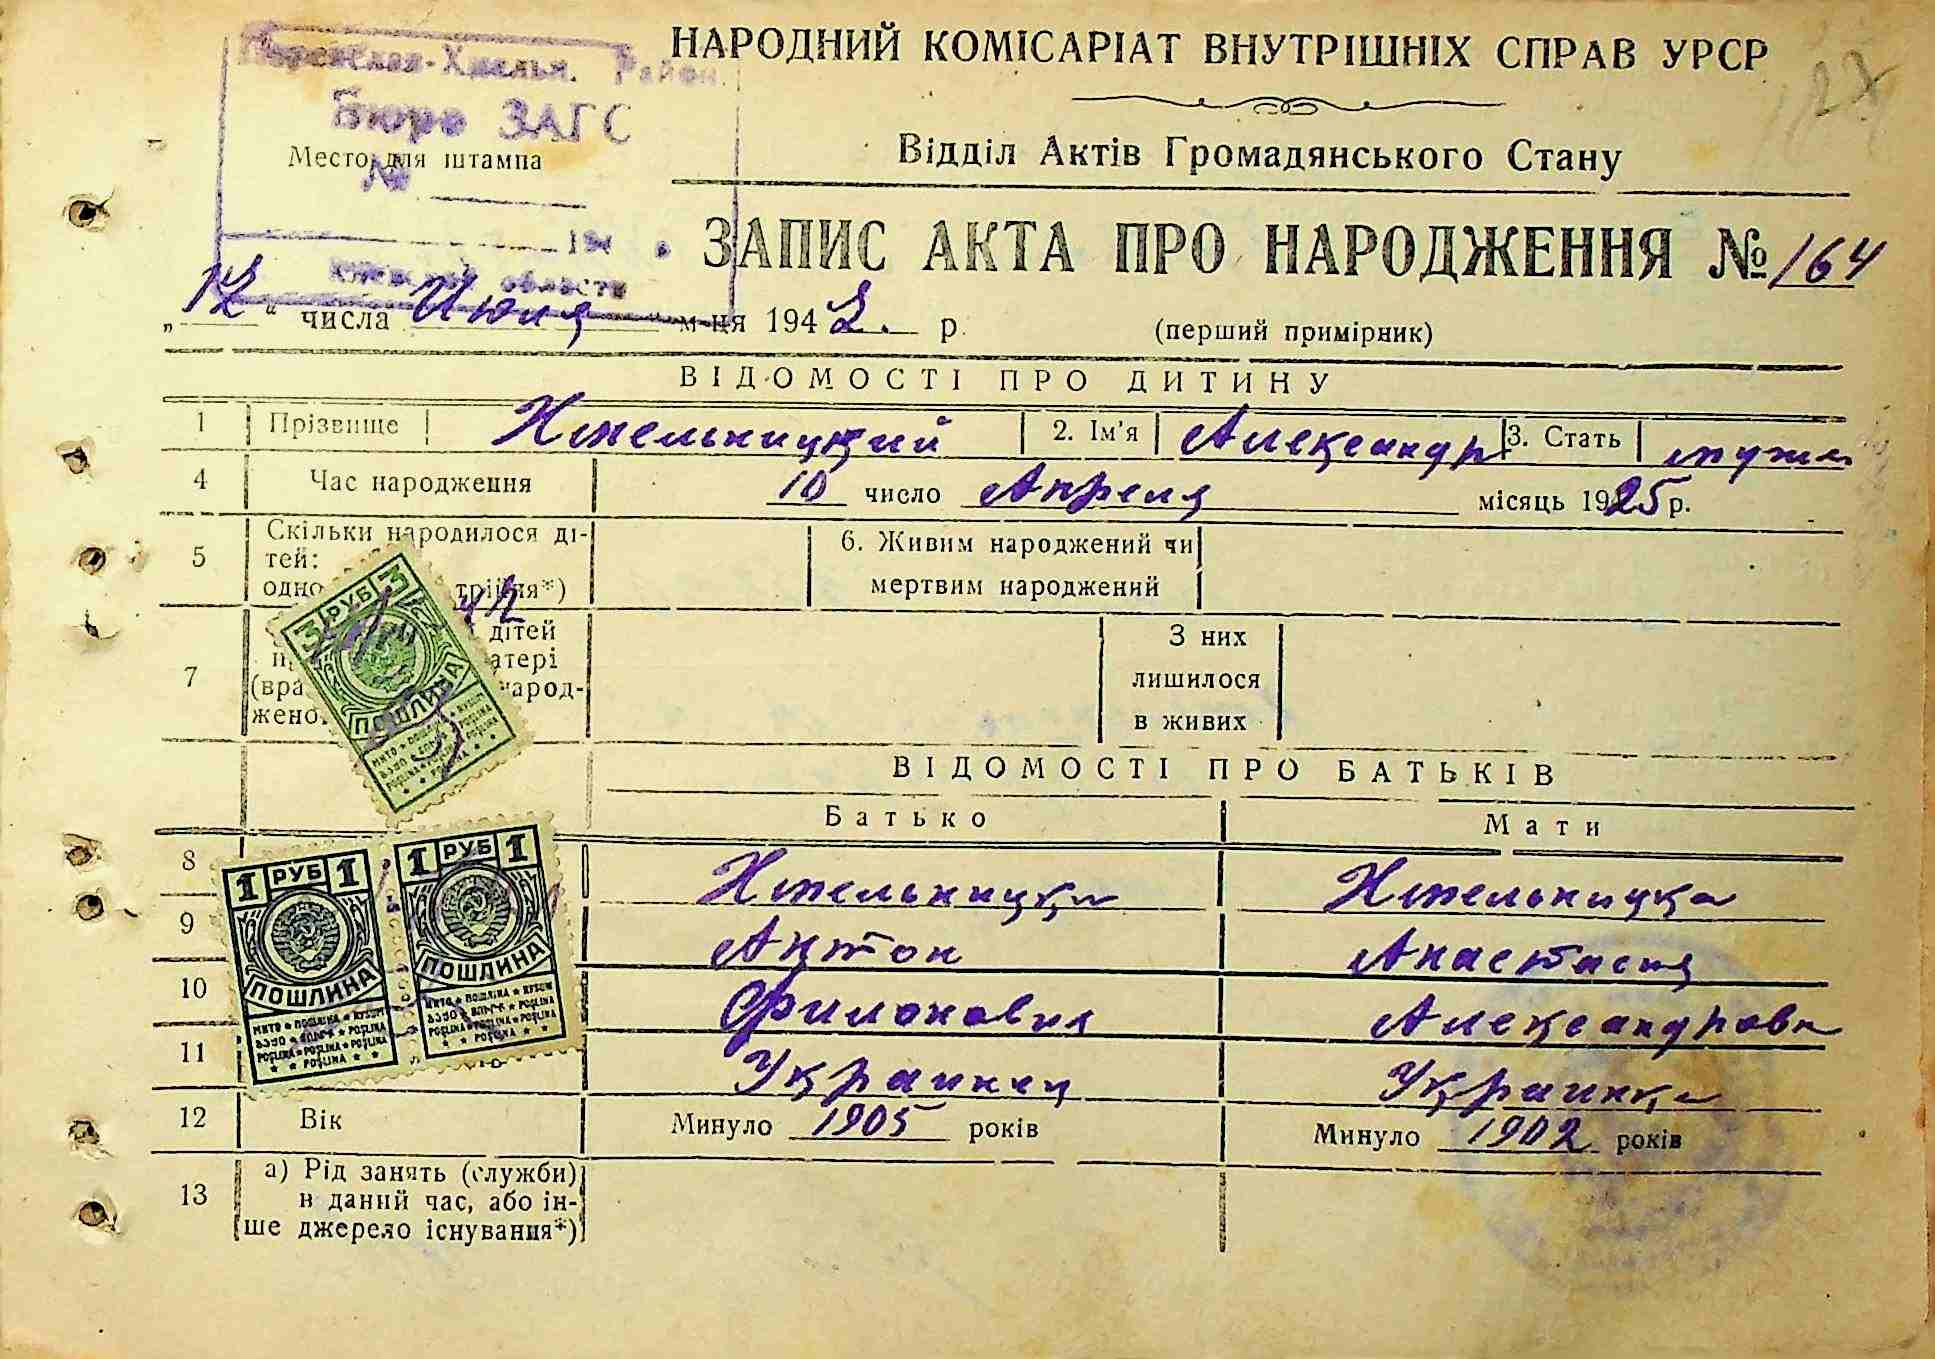 НАРОДНИЙ КОМІСАРІАТ ВНУТРІШНІХ СПРАВ УРСР
127
Хмельн. Район.
Бюро ЗАГС
Место для штампа
№
Відділ Актів Громадянського Стану
194
области
ЗАПИС АКТА ПРО НАРОДЖЕННЯ № 164
„12“ числа Июля м-ця 1942. р.
(перший примірник)
ВІДОМОСТІ ПРО ДИТИНУ
1 Прізвище Хмельницкий 2. Ім'я Александр 3. Стать мужс
4 Час народження 10 число Апреля місяць 1925 р.
5 Скільки народилося ді-
тей:
одно трійня*)
6. Живим народжений чи
мертвим народжений
7 дітей
матері
(вра народ-
жено
З них
лишилося
в живих
3 РУБ 3
ПОШЛИНА
ВІДОМОСТІ ПРО БАТЬКІВ
Батько Мати
8 Хмельницки Хмельницка
9 Антон Анастасия
10 Филонович Александровн
11 Украинец Украинка
12 Вік Минуло 1905 років Минуло 1902 років
1 РУБ 1
ПОШЛИНА
1 РУБ 1
ПОШЛИНА
13 а) Рід занять (служби)
в даний час, або ін-
ше джерело існування*)